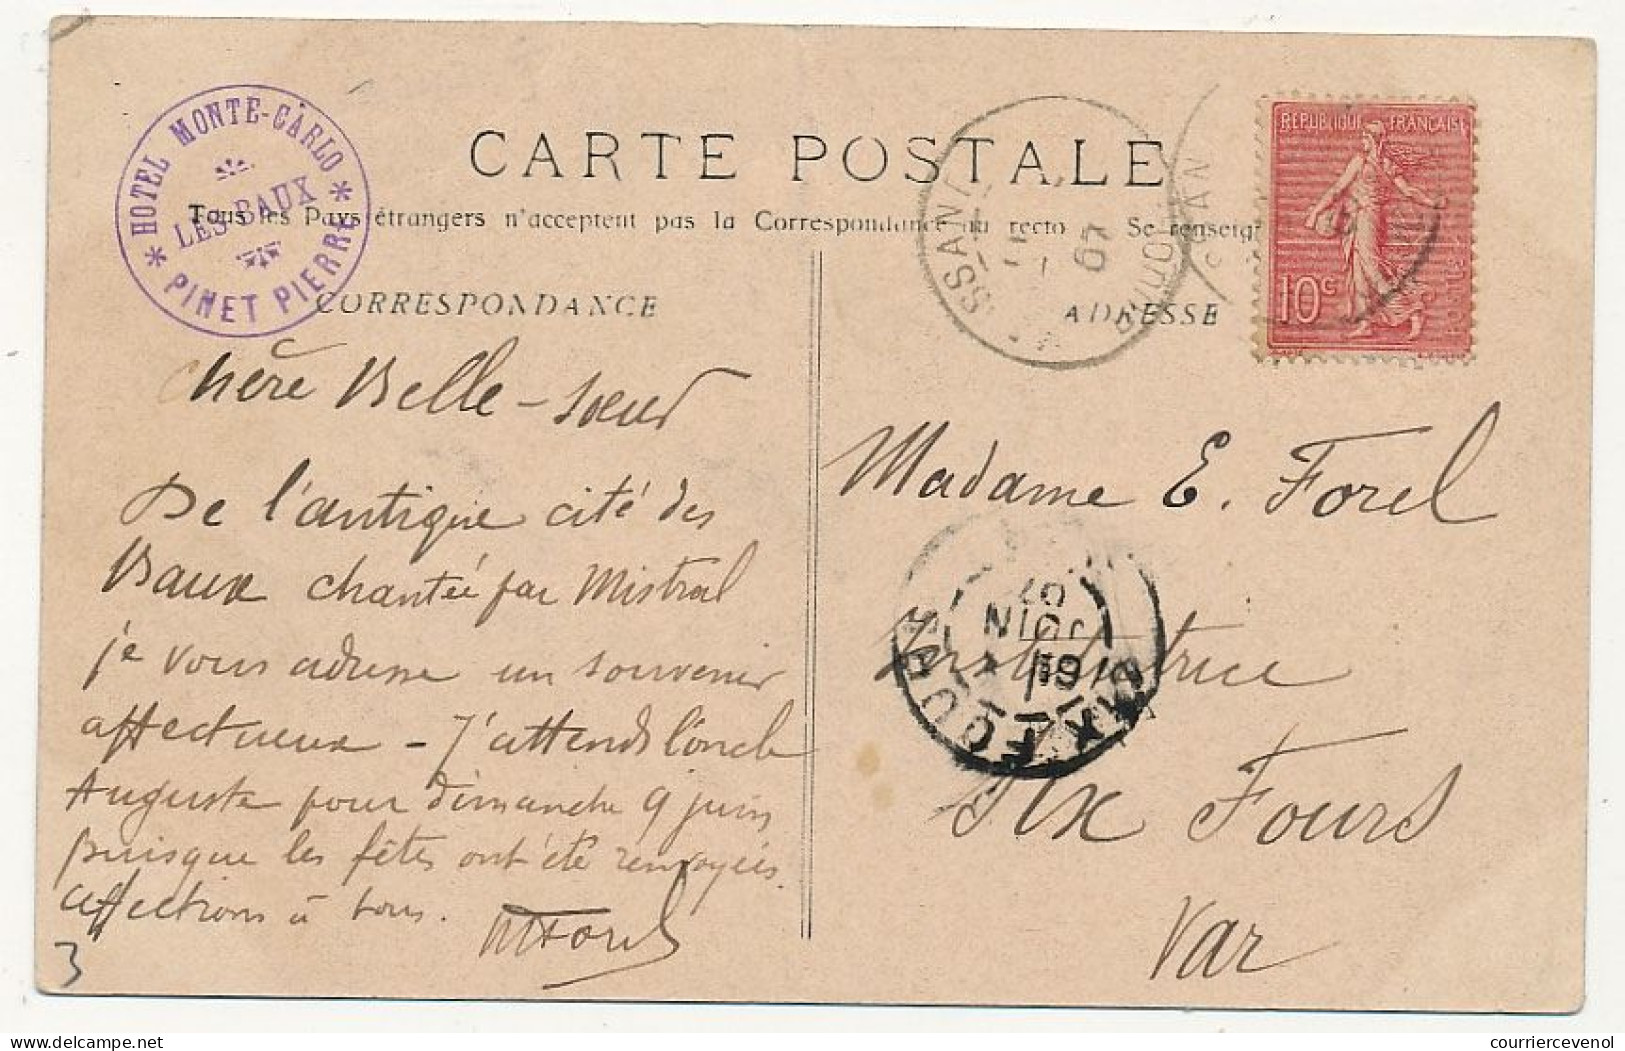 HOTEL MONTE-CARLO
LES BAUX
* PINET PIERRE *
CARTE POSTALE
Tous les Pays étrangers n'acceptent pas la Correspondance au recto Se renseig
CORRESPONDANCE
ADRESSE
REPUBLIQUE FRANÇAISE
10c
POSTES
07
chère Belle-soeur
De l'antique cité des
Baux chantée par Mistral
je vous adresse un souvenir
affectueux - J'attends l'oncle
Auguste pour dimanche 9 juin
puisque les fêtes ont été renvoyées.
affections à tous.
MForel
3
Madame E. Forel
Institutrice
Six Fours
Var
JUIN
07
courriercevenol